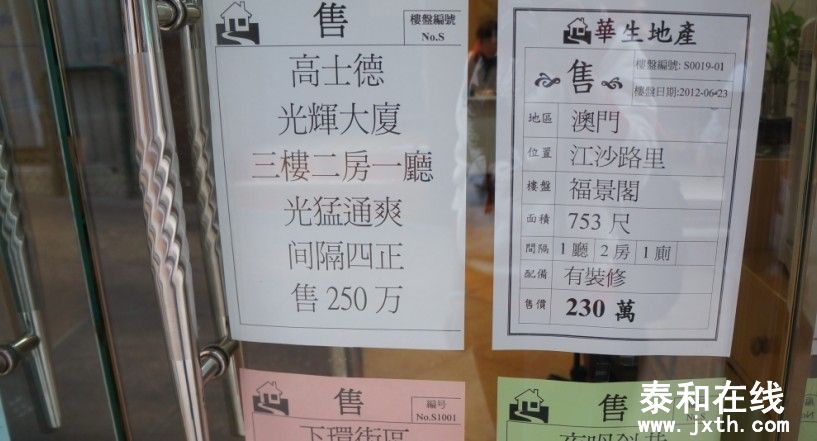 售
樓盤編號
No.S
高士德
光輝大廈
三樓二房一廳
光猛通爽
间隔四正
售 250 万
華生地產
售
樓盤編號: S0019-01
樓盤日期:2012-06-23
地區 澳門
位置 江沙路里
樓盤 福景閣
面積 753 尺
間隔 1 廳 2 房 1 廁
配備 有裝修
售價 230 萬
售
編号
No.S1001
下環街區
售
No.S
泰和在线
www.jxth.com